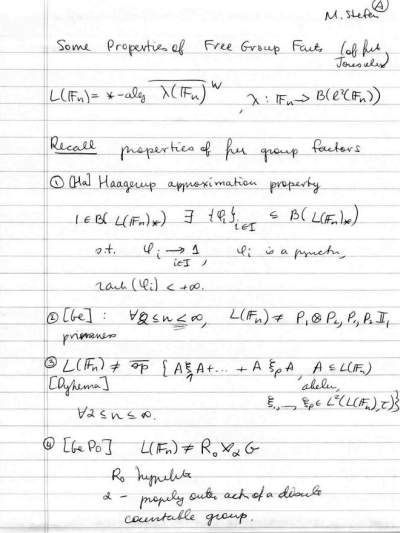 A
M. Stefan
Some Properties of Free Group Facts (of perf
L(𝔽n) = *-alg λ(𝔽n) W , λ : 𝔽n → B(ℓ²(𝔽n))
Recall properties of free group factors
① [Ha] Haagerup approximation property
1 ∈ B(L(𝔽n)*) ∃ {φi}i∈I ⊆ B(L(𝔽n)*)
s.t. φi → 1, φi is a
i∈I
rank(φi) < +∞.
② [Ge] : ∀2≤n≤∞, L(𝔽n) ≠ P1 ⊗ P2, P1, P2 II1
primeness
③ L(𝔽n) ≠ sp {Aξ1A+...+Aξp A, A ⊆ L(𝔽n)
[Dykema] abelian,
∀2≤n≤∞. ξ1,..., ξp ∈ L²(L(𝔽n),τ)}
④ [GePo] L(𝔽n) ≠ R0 ⋊α G
R0 hyperfinite
α - properly outer act of a discrete
countable group.